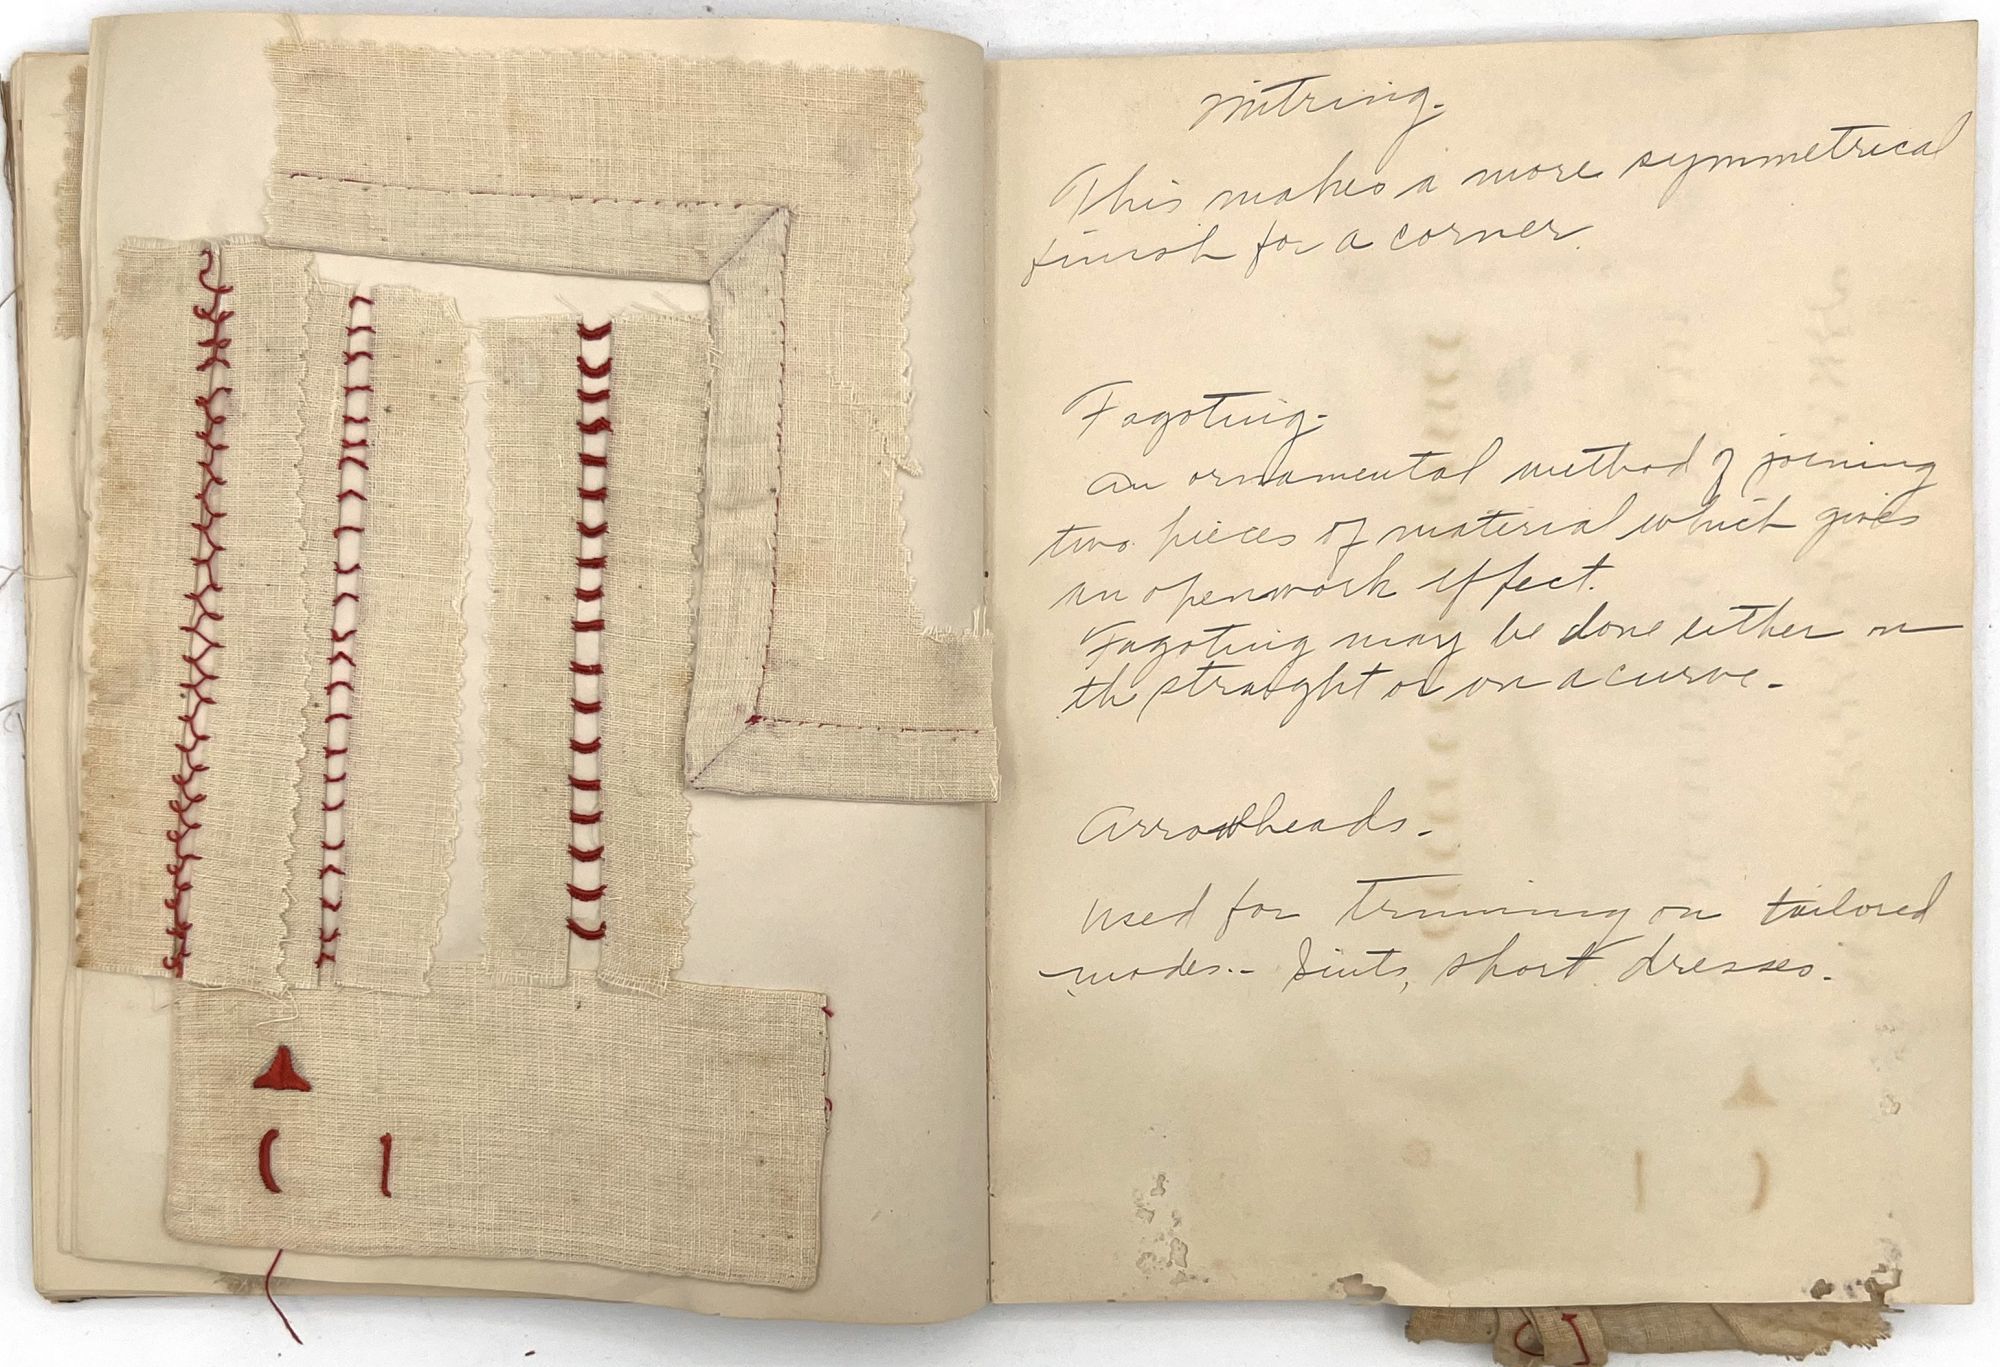 Mitring.
This makes a more symmetrical
finish for a corner.
Fagoting.
An ornamental method of joining
two pieces of material which gives
an openwork effect.
Fagoting may be done either on
the straight or on a curve.
Arrowheads.
Used for trimming on tailored
modes. - Suits, short dresses.